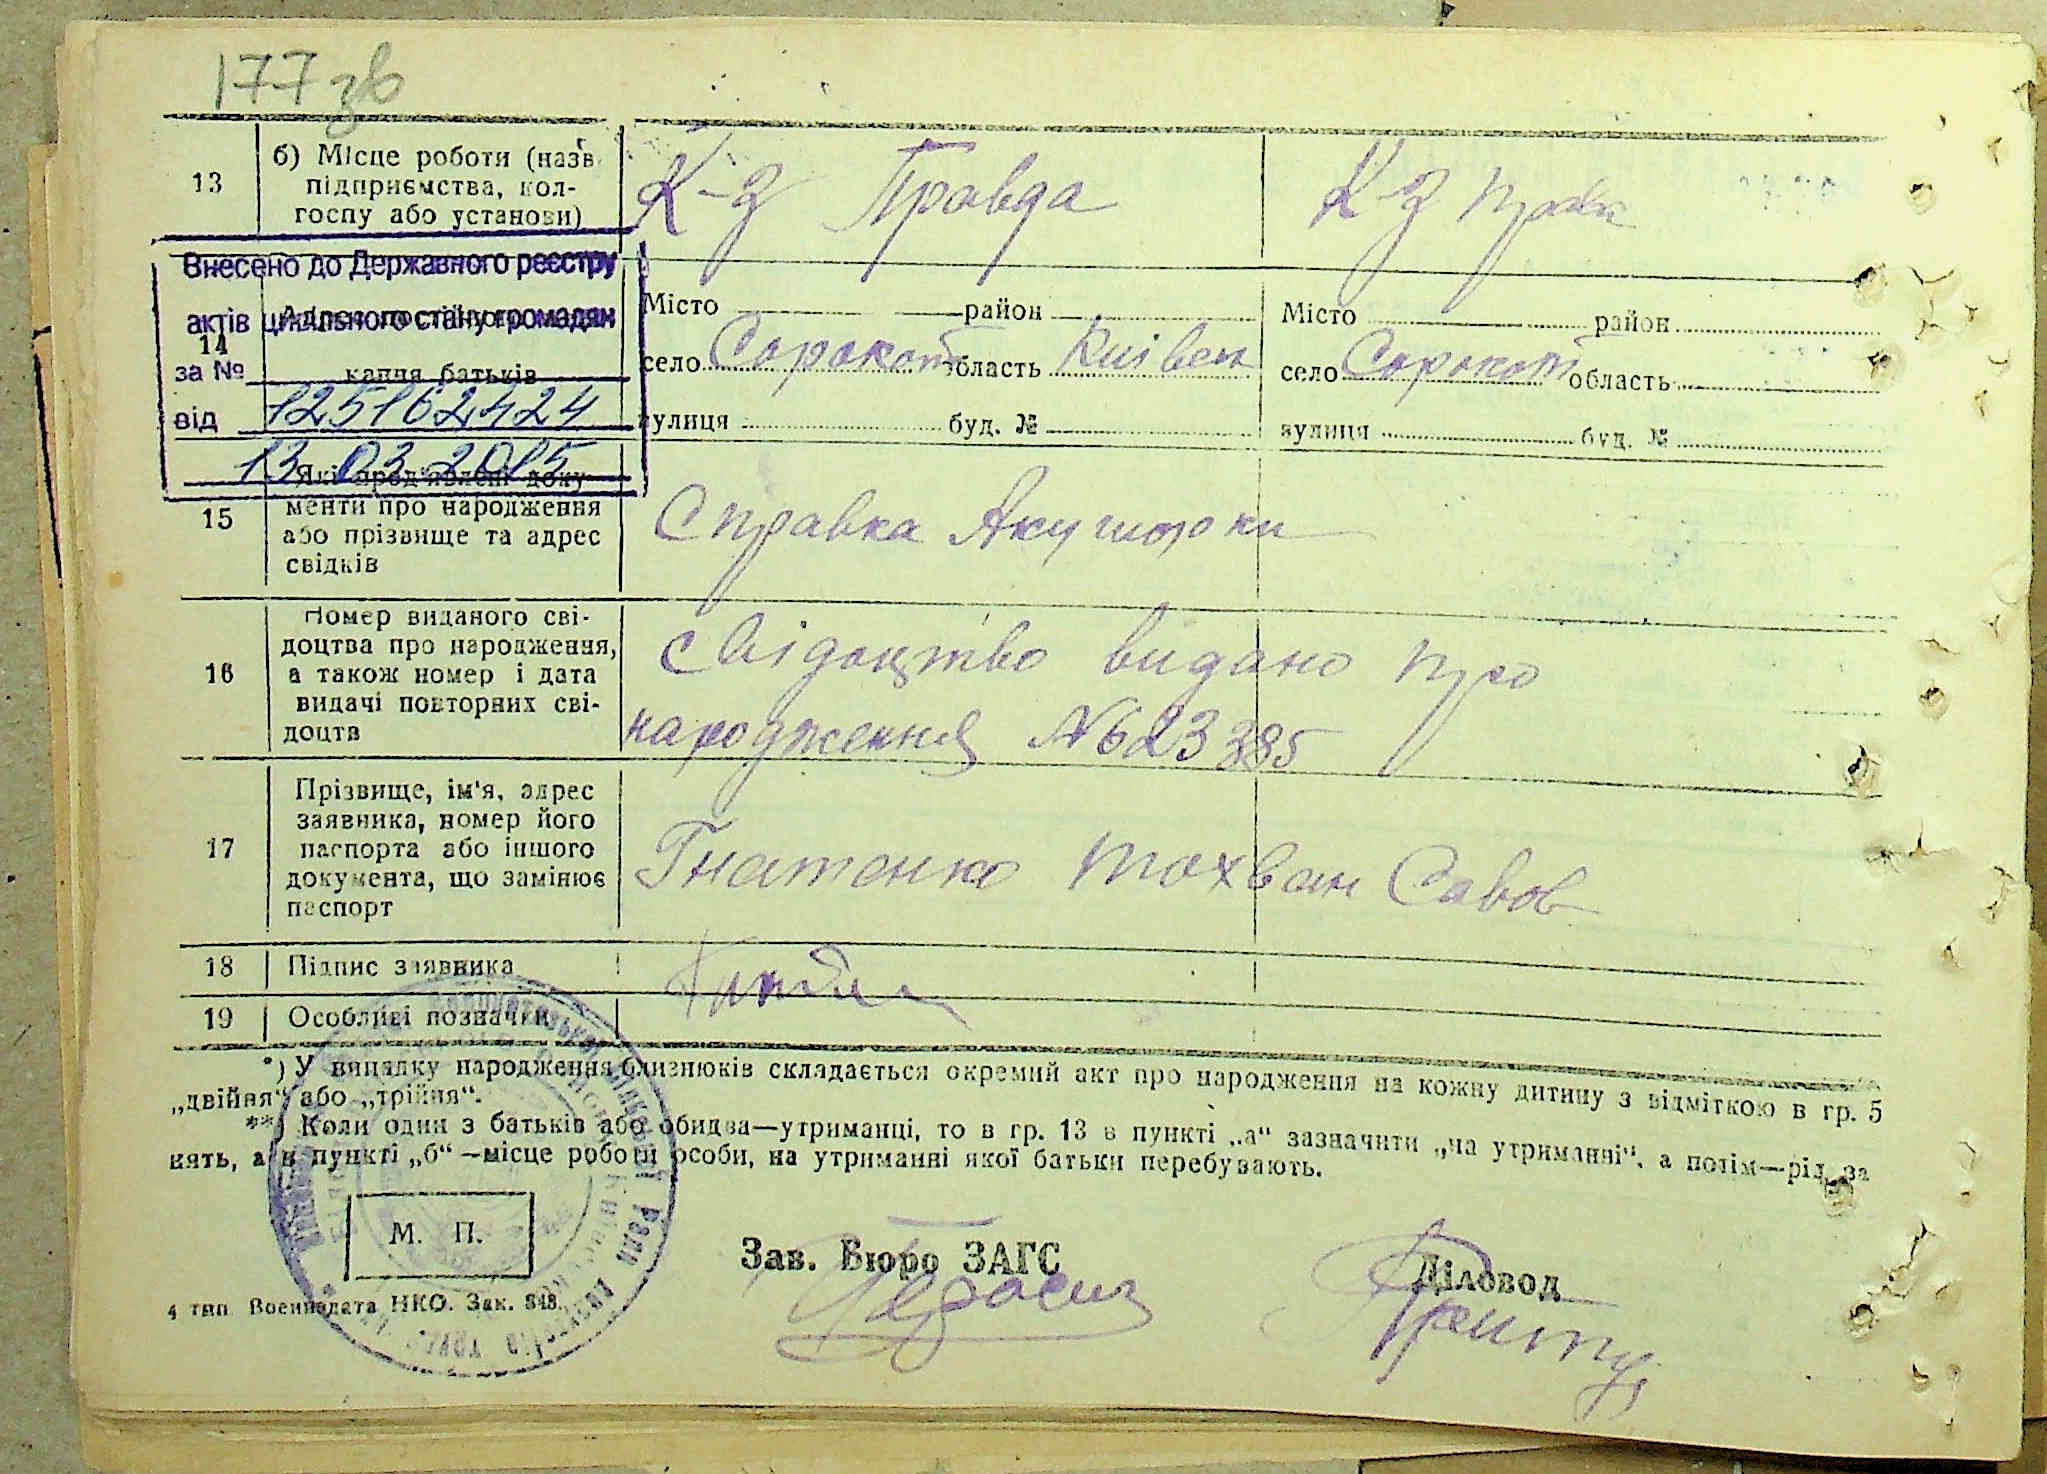 177 зв
13
б) Місце роботи (назв
підприємства, кол-
госпу або установи)
К-з Правда
К-з Правд
Внесено до Державного реєстру
актів цивільного стану громадян
за №
125162424
від
13.03.2015
14
Адрес постійного
кання батьків
Місто район
село Сорокот область Київськ
вулиця буд. №
Місто район
село Сорокот область
вулиця буд. №
15
Які пред'явлені доку
менти про народження
або прізвище та адрес
свідків
Справка Акушорки
16
Номер виданого сві-
доцтва про народження,
а також номер і дата
видачі повторних сві-
доцтв
свідоцтво видано про
народження №623385
17
Прізвище, ім'я, адрес
заявника, номер його
паспорта або іншого
документа, що замінює
паспорт
Гнатенко Савов
18
Підпис заявника
19
Особливі позначки
*) У випадку народження близнюків складається окремий акт про народження на кожну дитину з відміткою в гр. 5
„двійня“ або „трійня“.
**) Коли один з батьків або обидва—утриманці, то в гр. 13 в пункті „а“ зазначити „на утриманні“, а потім—рід за
нять, а в пункті „б“—місце роботи особи, на утриманні якої батьки перебувають.
М. П.
Зав. Бюро ЗАГС
Діловод
4 тип. Воениздата НКО. Зак. 348.